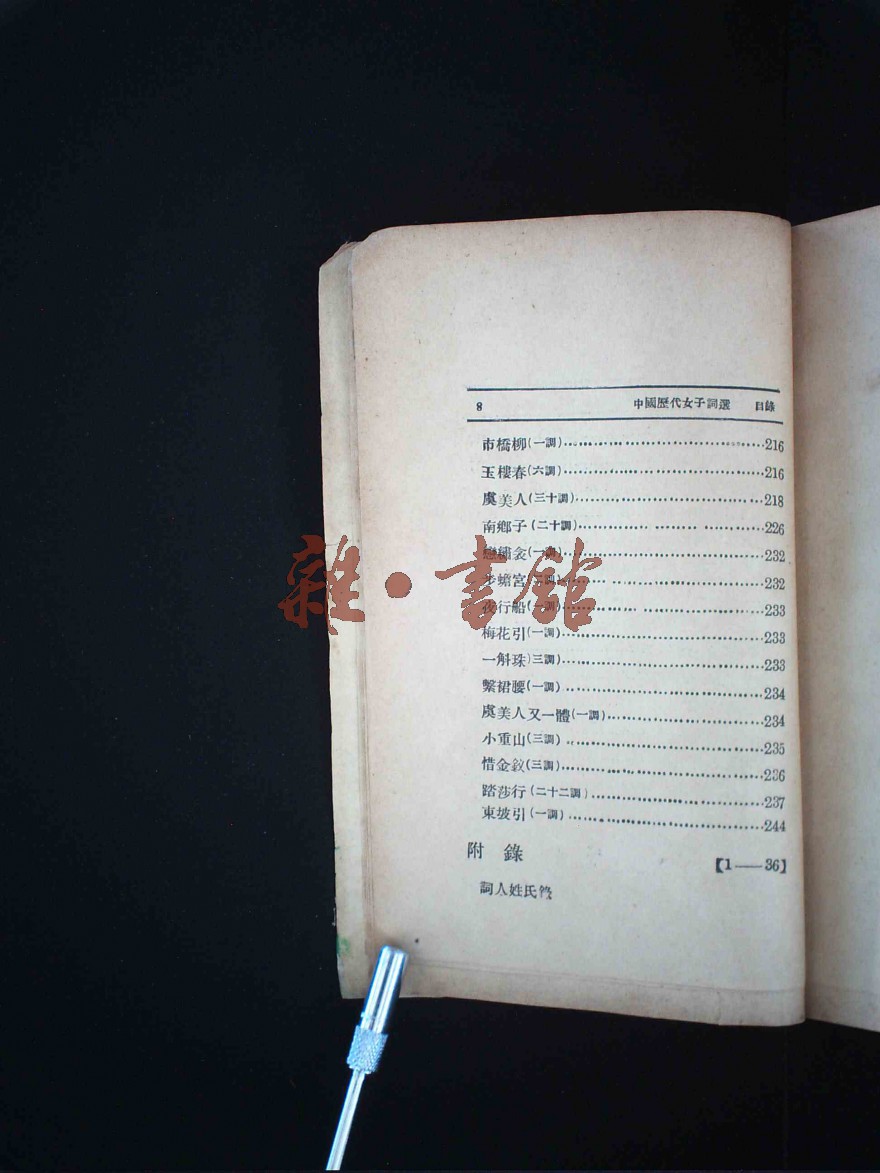 8 中國歷代女子詞選 目錄
市橋柳(一調)……216
玉樓春(六調)……216
虞美人(三十調)……218
南鄉子(二十調)……226
戀繡衾(一調)……232
步蟾宮(三調)……232
夜行船(一調)……233
梅花引(一調)……233
一斛珠)三調)……233
繫裙腰(一調)……234
虞美人又一體(一調)……234
小重山(三調)……235
惜金釵(三調)……236
踏莎行(二十二調)……237
東坡引(一調)……244
附錄 【1——36】
詞人姓氏
雜·書館